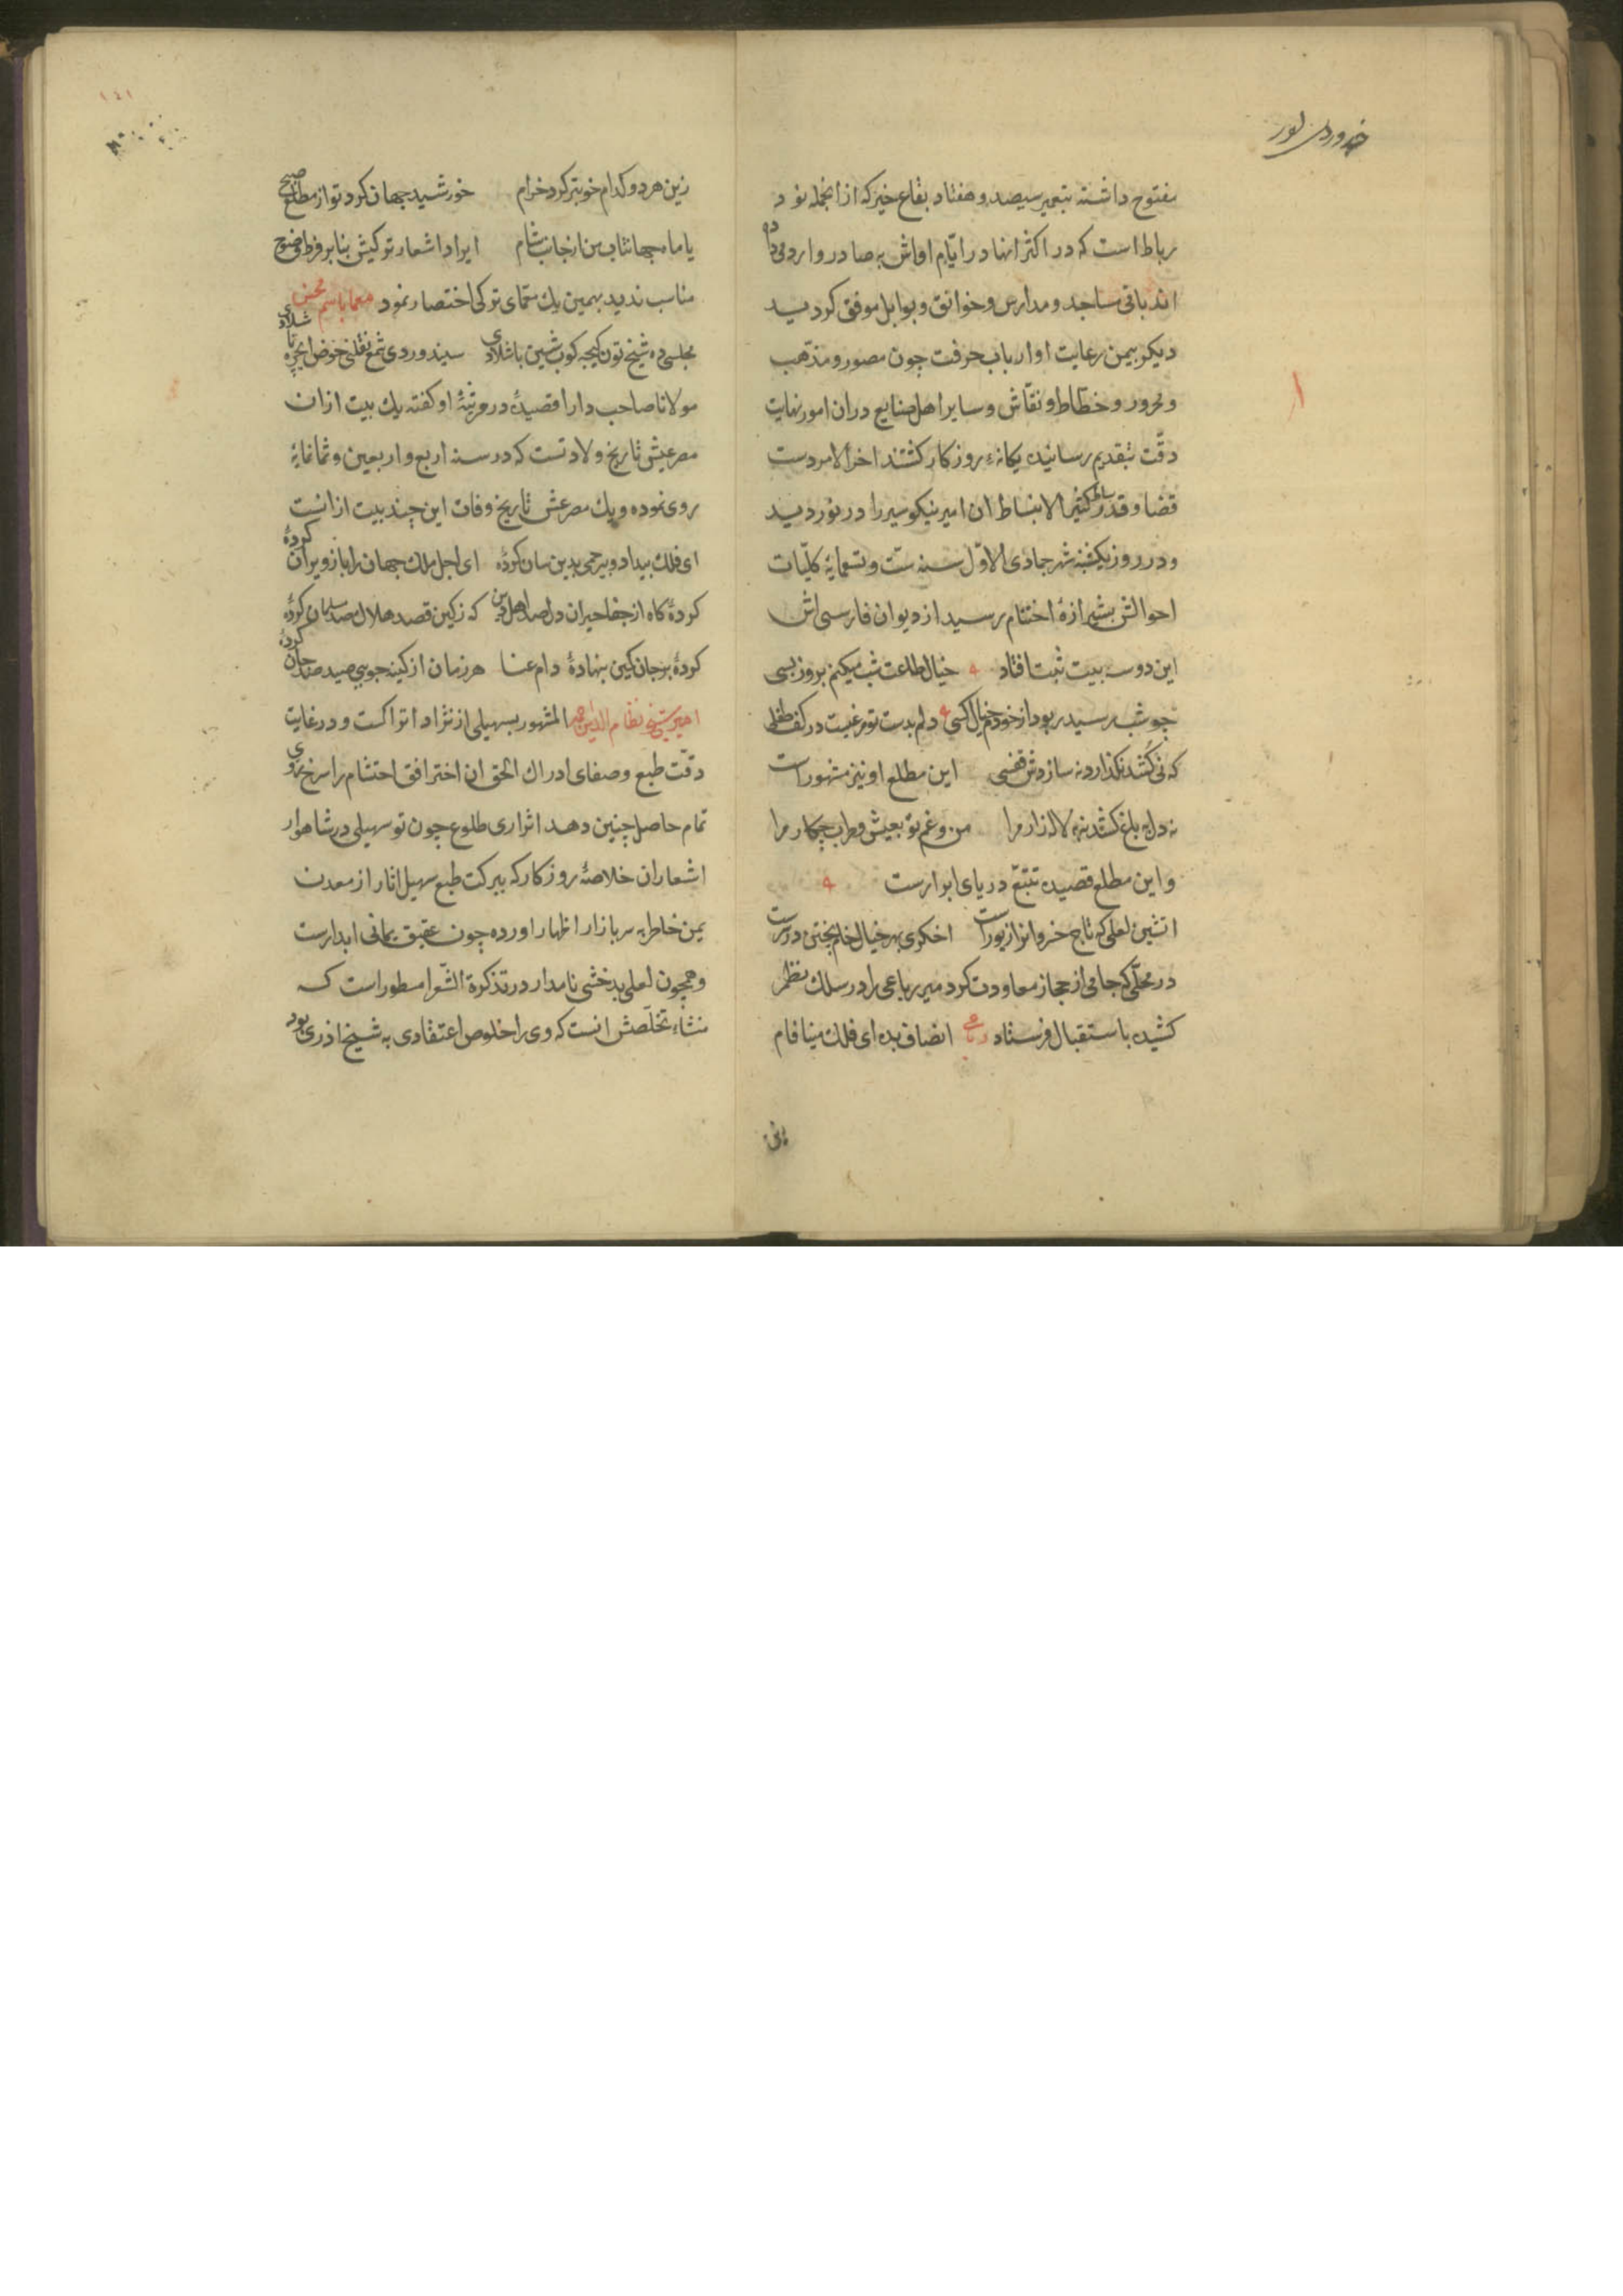 مفتوح داشته بتعمیر سیصد و هفتاد بقاع خیر که از انجمله نود
رباط است که در اکثر انها در ایام اواش به صادر و وارد می داده
اند باقی مساجد و مدارس و خوانق و بوابل موفق کردید
دیکر بیمن رعایت او ارباب حرفت چون مصور و مذهب
و محرور و خطاط و نقاش و سایر اهل صنایع دران امور نهایت
دقت بتقدیم رسانیده یکانهء روزکار کشتند اخر الامر دست
قضا و قدر بساط کثیر الانبساط ان امیر نیکو سیر را در نوردید
و در روز یکشنبه شهر جمادی الاول سنه ست و تسعمایة کلیات
احوالش بشیرازهٔ اختتام رسید از دیوان فارسی اش
این دو سه بیت ثبت افتاد خیال طلعت شب میکنم بروز بسی
چو شب رسید ربود از خودم خیال کسی دلم بدست تو مرغیست در کف طفلی
که نی کُشد نکذارد نه سازدش قفسی این مطلع او نیز مشهور است
نه دل به باغ کشد نه به لاله زار مرا من و غم تو بعیش و طرب چکار مرا
و این مطلع قصیده تتبع دریای ابرارست
اتشین لعلی که تاج خسروانرا زیورست اخکری بهر خیال خام پختن در سرست
در محلی که جامی از حجاز معاودت کرد میر رباعی را در سلک نظم
کشیده باستقبال فرستاد رباعی انصاف بده ای فلک مینا فام
زین هر دو کدام خوبتر کرد خرام خورشید جهان کرد تو از مطلع صبح
یا ماه جهانتاب من از جانب شام ایراد اشعار ترکیش بنا بر فرط وضوح
مناسب ندید بهمین یک معمای ترکی اختصار نمود معما باسم محسن
مولانا صاحب دارا قصیدهٔ در مرثیهٔ او کفته یک بیت ازان
مصرعیش تاریخ ولادتست که در سنه اربع و اربعین و ثمانمایهٔ
روی نموده و یک مصرعش تاریخ وفات این چند بیت از انست
ای فلک بیداد و بیرحمی بدین سان کردهٔ ای اجل ملک جهان را باز ویران کردهٔ
کردهٔ بر جان کمین بنهادهٔ دام عنا هر زمان از کینه جویی صید صد جان کردهٔ
امیر شیخ نظام الدین احمد المشهور بسهیلی از نژاد اتراکست و در غایت
دقت طبع و صفای ادراک الحق ان اختر افق احتشام را سرخ روی
تمام حاصل چنین دهد اثر اری طلوع چون تو سهیلی در شاهوار
اشعار ان خلاصهٔ روزکار که ببرکت طبع سهیل اثار از معدن
یمن خاطر به سر بازار اظهار اورده چون عقیق یمانی ابدارست
و همچون لعل بدخشی نامدار در تذکرة الشعرا مسطور است که
منشاء تخلصش انست که وی را خلوص اعتقادی به شیخ اذری بود